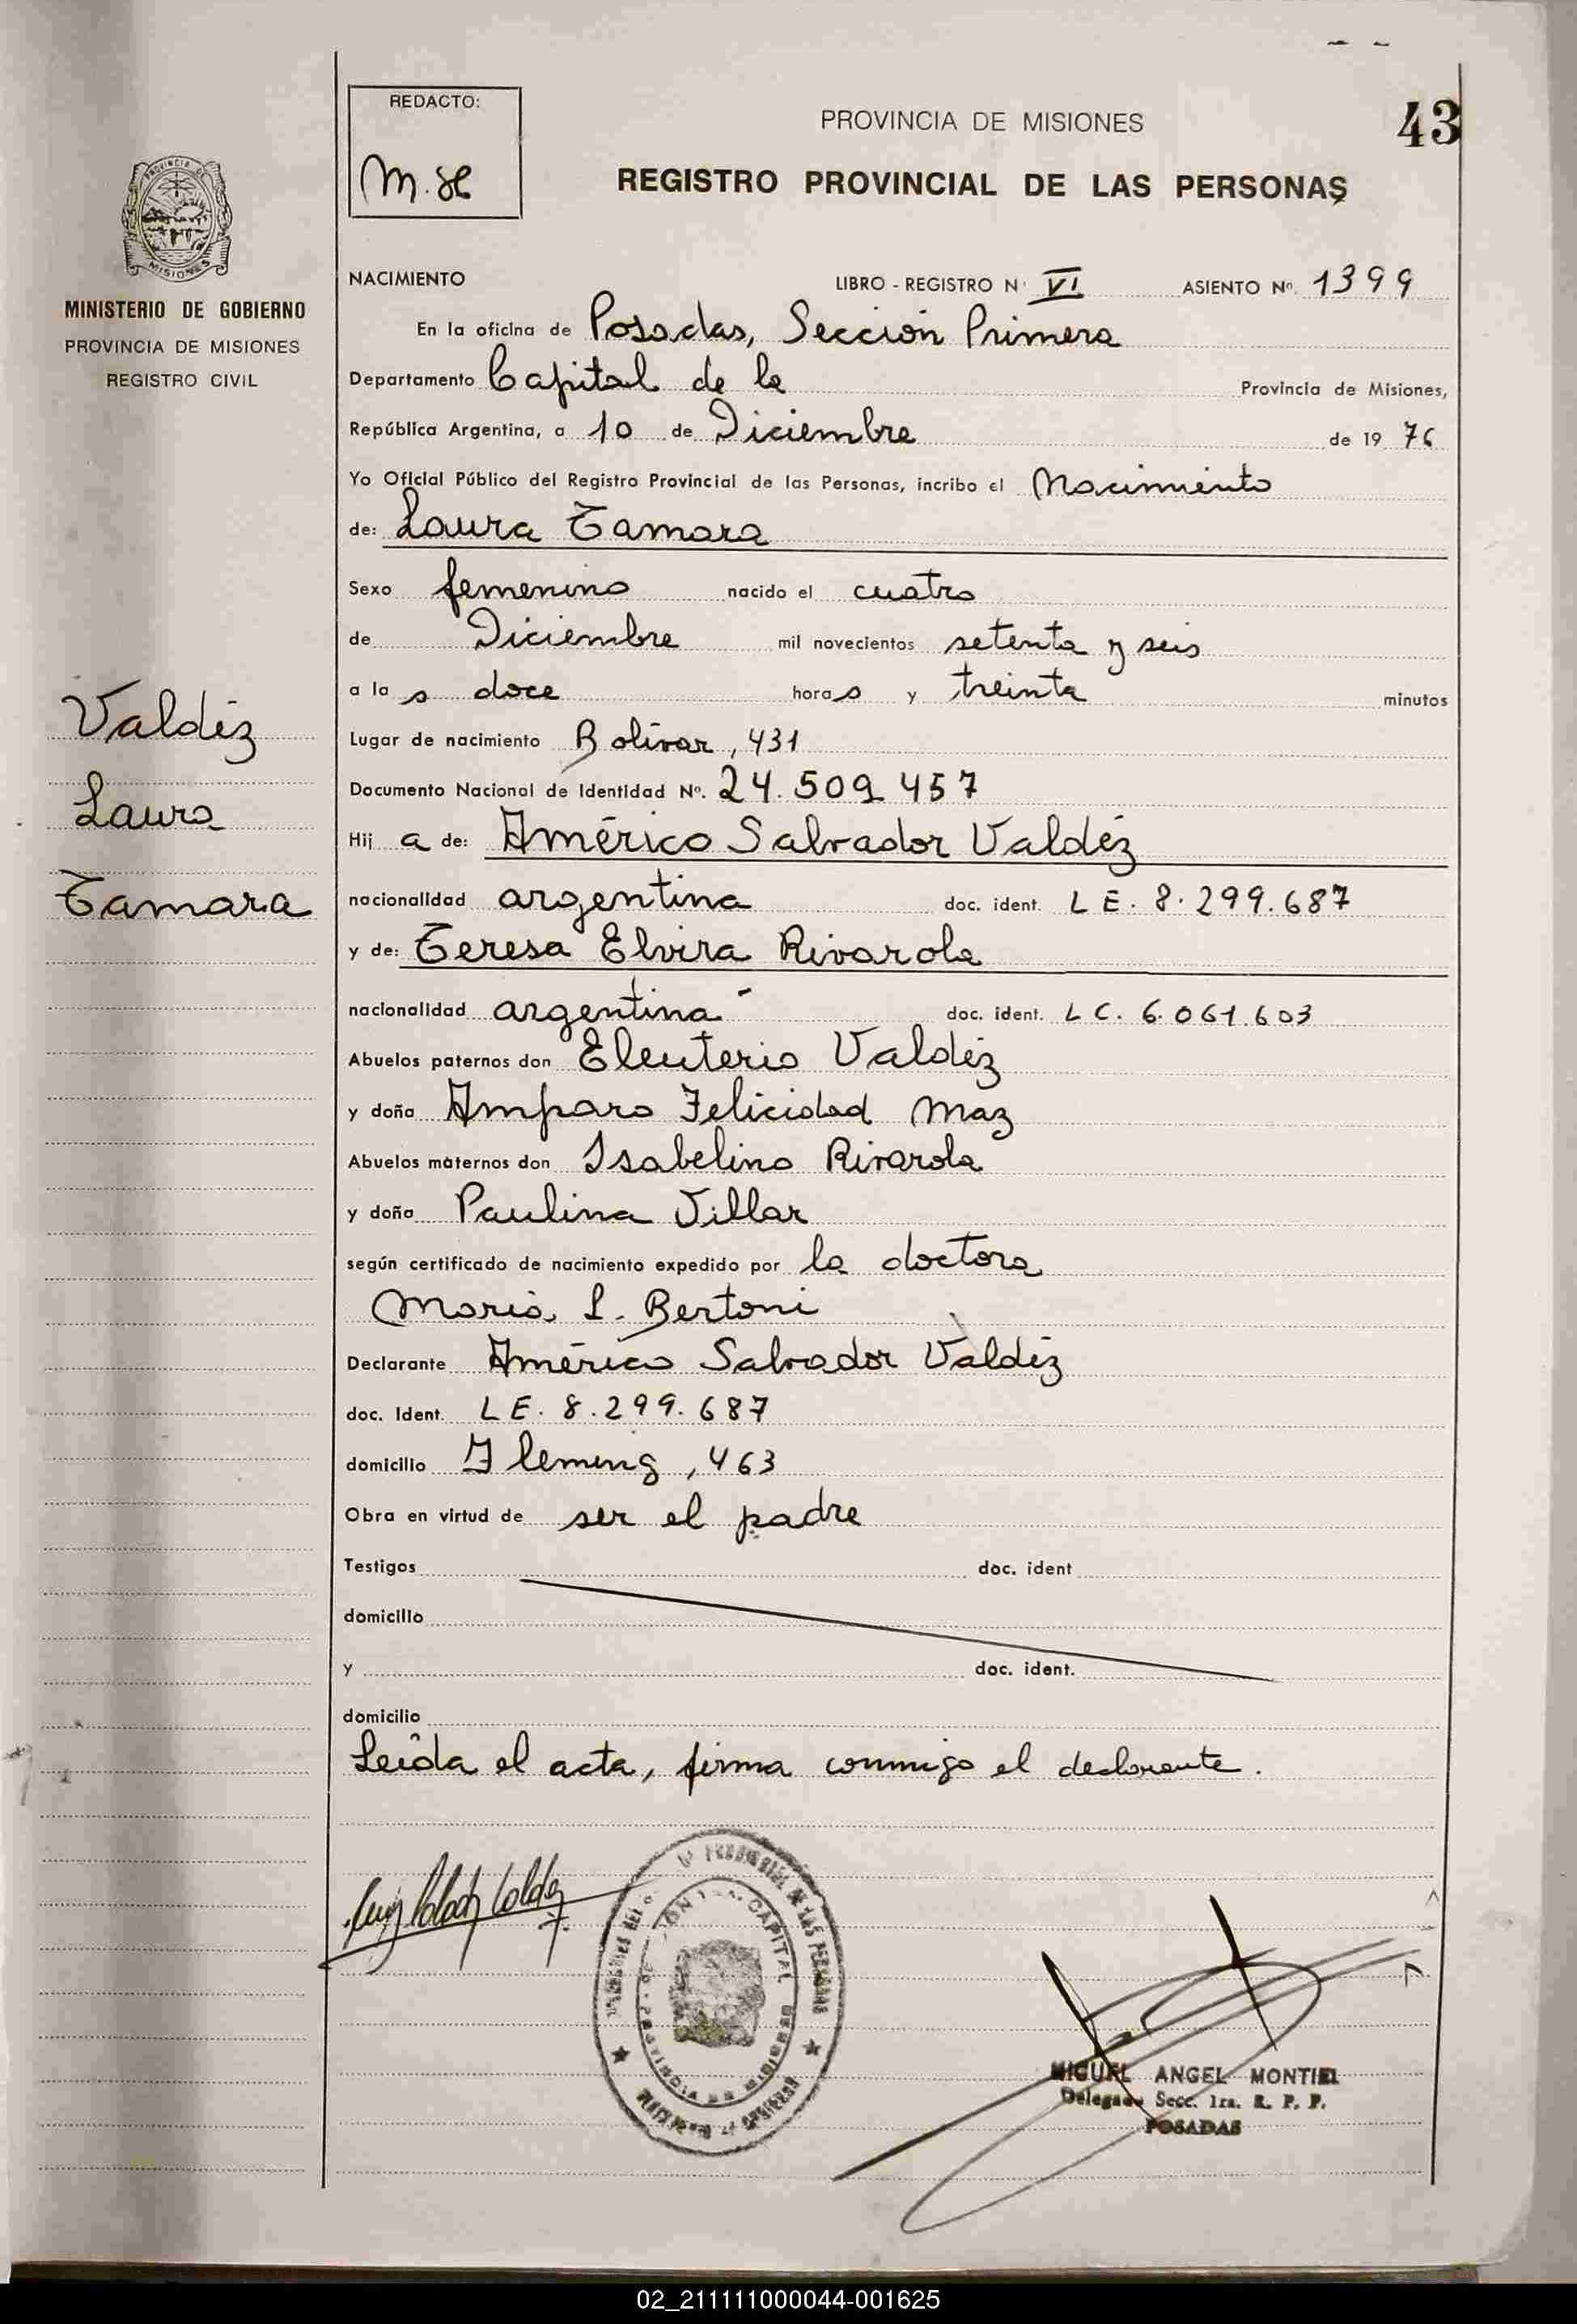 REDACTO:
M. H
PROVINCIA DE MISIONES
43
REGISTRO PROVINCIAL DE LAS PERSONAS
PROVINCIA DE
MISIONES
MINISTERIO DE GOBIERNO
PROVINCIA DE MISIONES
REGISTRO CIVIL
Valdéz
Laura
Tamara
NACIMIENTO LIBRO - REGISTRO N VI ASIENTO Nº. 1399
En la oficina de Posadas, Sección Primera
Departamento Capital de la Provincia de Misiones,
República Argentina, a 10 de Diciembre de 19 76
Yo Oficial Público del Registro Provincial de las Personas, incribo el Nacimiento
de: Laura Tamara
Sexo femenino nacido el cuatro
de Diciembre mil novecientos setenta y seis
a la s doce hora s y treinta minutos
Lugar de nacimiento Bolívar, 431
Documento Nacional de Identidad Nº. 24.509 457
Hij a de: Américo Salvador Valdéz
nacionalidad argentina doc. ident. L E. 8.299.687
y de: Teresa Elvira Rivarola
nacionalidad argentina doc. ident. L C. 6.061.603
Abuelos paternos don Eleuterio Valdéz
y doña Amparo Felicidad Maz
Abuelos maternos don Isabelino Rivarola
y doña Paulina Villar
según certificado de nacimiento expedido por la doctora
María L. Bertoni
Declarante Américo Salvador Valdéz
doc. Ident. L E. 8.299.687
domicilio Fleming, 463
Obra en virtud de ser el padre
Testigos doc. ident
domicilio
y doc. ident.
domicilio
Leída el acta, firma conmigo el declarante.
CAPITAL
DE LAS PERSONAS
MIGUEL ANGEL MONTIEL
Delegado Secc. 1ra. R. P. P.
POSADAS
02_211111000044-001625